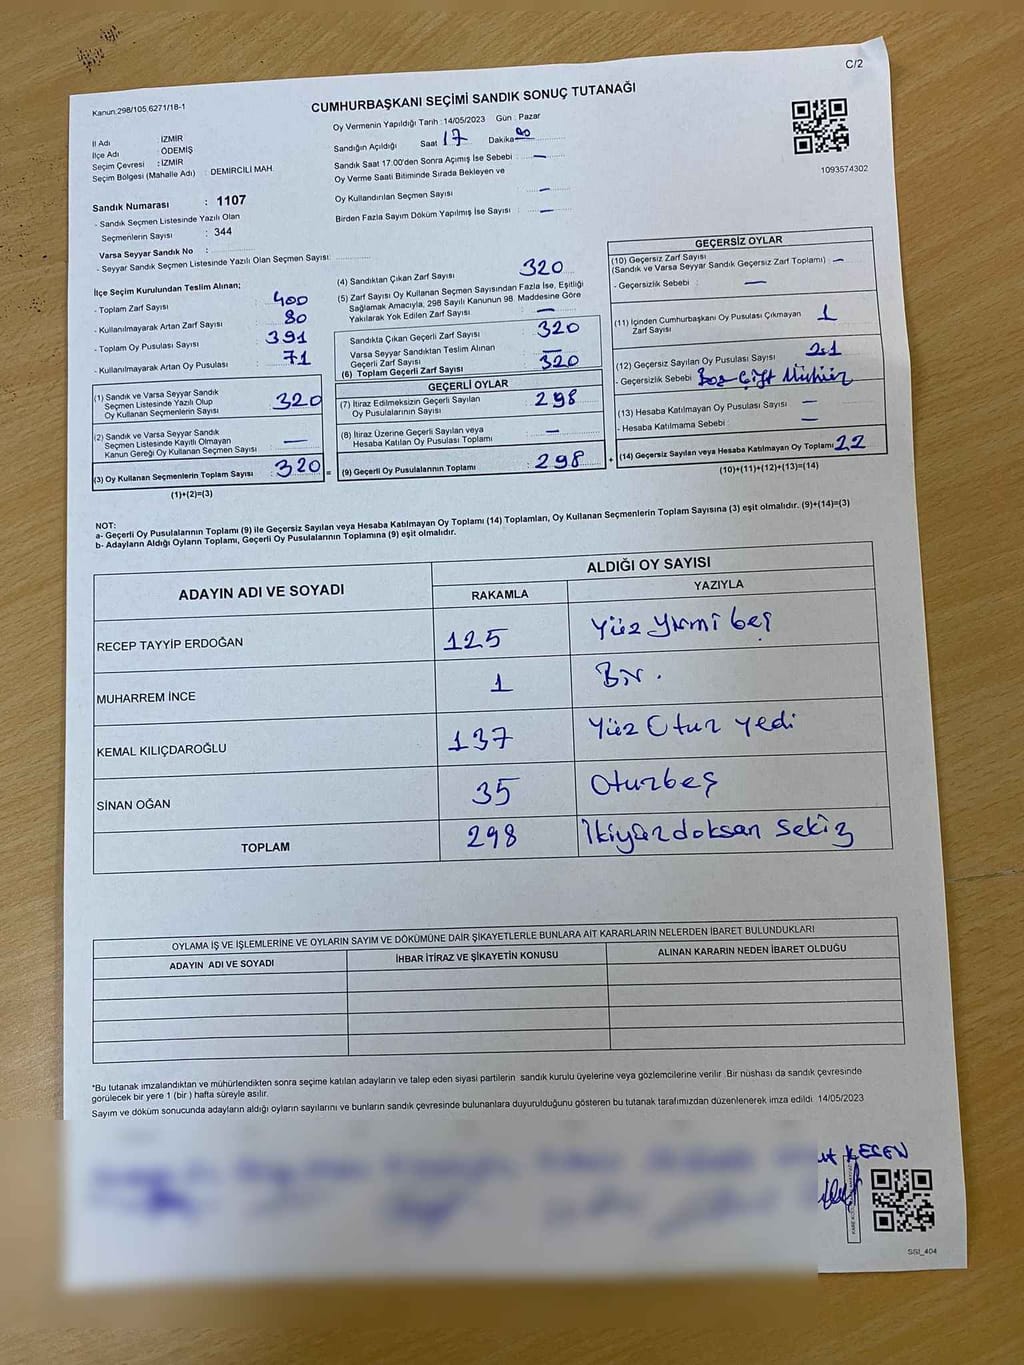 C/2
Kanun,298/105,6271/18-1
CUMHURBAŞKANI SEÇİMİ SANDIK SONUÇ TUTANAĞI
İl Adı : İZMİR
İlçe Adı : ÖDEMİŞ
Seçim Çevresi : İZMİR
Seçim Bölgesi (Mahalle Adı) : DEMİRCİLİ MAH.
Sandık Numarası : 1107
- Sandık Seçmen Listesinde Yazılı Olan
Seçmenlerin Sayısı : 344
Varsa Seyyar Sandık No :
- Seyyar Sandık Seçmen Listesinde Yazılı Olan Seçmen Sayısı:
Oy Vermenin Yapıldığı Tarih : 14/05/2023 Gün : Pazar
Sandığın Açıldığı Saat 17 Dakika 00
Sandık Saat 17.00'den Sonra Açımış İse Sebebi : —
Oy Verme Saati Bitiminde Sırada Bekleyen ve
Oy Kullandırılan Seçmen Sayısı : —
Birden Fazla Sayım Döküm Yapılmış İse Sayısı : —
1093574302
İlçe Seçim Kurulundan Teslim Alınan;
- Toplam Zarf Sayısı : 400
- Kullanılmayarak Artan Zarf Sayısı : 80
- Toplam Oy Pusulası Sayısı : 391
- Kullanılmayarak Artan Oy Pusulası : 71
(1) Sandık ve Varsa Seyyar Sandık
Seçmen Listesinde Yazılı Olup
Oy Kullanan Seçmenlerin Sayısı : 320
(2) Sandık ve Varsa Seyyar Sandık
Seçmen Listesinde Kayıtlı Olmayan
Kanun Gereği Oy Kullanan Seçmen Sayısı : —
(3) Oy Kullanan Seçmenlerin Toplam Sayısı : 320 =
(1)+(2)=(3)
(4) Sandıktan Çıkan Zarf Sayısı : 320
(5) Zarf Sayısı Oy Kullanan Seçmen Sayısından Fazla İse, Eşitliği
Sağlamak Amacıyla, 298 Sayılı Kanunun 98. Maddesine Göre
Yakılarak Yok Edilen Zarf Sayısı : —
Sandıkta Çıkan Geçerli Zarf Sayısı : 320
Varsa Seyyar Sandıktan Teslim Alınan
Geçerli Zarf Sayısı : —
(6) Toplam Geçerli Zarf Sayısı : 320
GEÇERLİ OYLAR
(7) İtiraz Edilmeksizin Geçerli Sayılan
Oy Pusulalarının Sayısı : 298
(8) İtiraz Üzerine Geçerli Sayılan ve
Hesaba Katılan Oy Pusulası Toplamı : —
(9) Geçerli Oy Pusulalarının Toplamı : 298 +
GEÇERSİZ OYLAR
(10) Geçersiz Zarf Sayısı
(Sandık ve Varsa Seyyar Sandık Geçersiz Zarf Toplamı) : —
- Geçersizlik Sebebi : —
(11) İçinden Cumhurbaşkanı Oy Pusulası Çıkmayan
Zarf Sayısı : 1
(12) Geçersiz Sayılan Oy Pusulası Sayısı : 21
- Geçersizlik Sebebi : Boş Çift Mühür
(13) Hesaba Katılmayan Oy Pusulası Sayısı : —
- Hesaba Katılmama Sebebi : —
(14) Geçersiz Sayılan veya Hesaba Katılmayan Oy Toplamı : 22
(10)+(11)+(12)+(13)=(14)
NOT:
a- Geçerli Oy Pusulalarının Toplamı (9) ile Geçersiz Sayılan veya Hesaba Katılmayan Oy Toplamı (14) Toplamları, Oy Kullanan Seçmenlerin Toplam Sayısına (3) eşit olmalıdır. (9)+(14)=(3)
b- Adayların Aldığı Oyların Toplamı, Geçerli Oy Pusulalarının Toplamına (9) eşit olmalıdır.
ADAYIN ADI VE SOYADI
ALDIĞI OY SAYISI
RAKAMLA YAZIYLA
RECEP TAYYİP ERDOĞAN 125 Yüz Yirmi beş
MUHARREM İNCE 1 Bir.
KEMAL KILIÇDAROĞLU 137 Yüz Otuz yedi
SİNAN OĞAN 35 Otuzbeş
TOPLAM 298 İkiyüzdoksan sekiz
OYLAMA İŞ VE İŞLEMLERİNE VE OYLARIN SAYIM VE DÖKÜMÜNE DAİR ŞİKAYETLERLE BUNLARA AİT KARARLARIN NELERDEN İBARET BULUNDUKLARI
ADAYIN ADI VE SOYADI İHBAR İTİRAZ VE ŞİKAYETİN KONUSU ALINAN KARARIN NEDEN İBARET OLDUĞU
*Bu tutanak imzalandıktan ve mühürlendikten sonra seçime katılan adayların ve talep eden siyasi partilerin sandık kurulu üyelerine veya gözlemcilerine verilir .Bir nüshası da sandık çevresinde
görülecek bir yere 1 (bir ) hafta süreyle asılır.
Sayım ve döküm sonucunda adayların aldığı oyların sayılarını ve bunların sandık çevresinde bulunanlara duyurulduğunu gösteren bu tutanak tarafımızdan düzenlenerek imza edildi 14/05/2023
KESEN
SSI_404